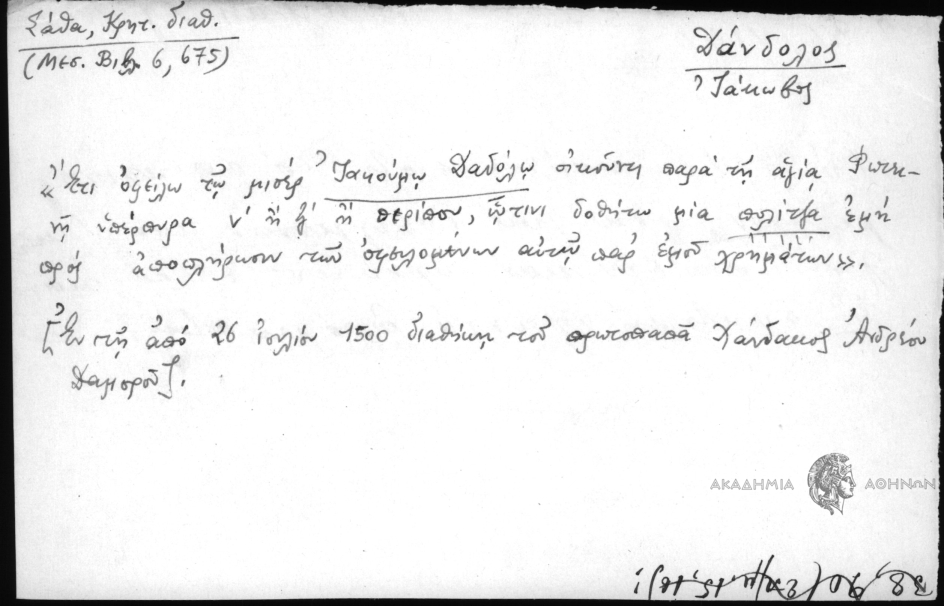 Σάθα, Κρητ. διαθ.
(Μεσ. Βιβλ. 6, 675)
Δάνδολος
Ἰάκωβος
«Ἔτι ὀφείλω τῷ μισέρ Ἰακούμῳ Δαδόλῳ οἰκοῦντι παρά τῇ ἁγίᾳ Φωτει-
νῇ ὑπέρπυρα ν' ἤ ξ' ἤ περίπου, ᾧτινι δοθήτω μία πολίτζα ἐμή
πρός ἀποπλήρωσιν τῶν ὀφειλομένων αὐτῷ παρ' ἐμοῦ χρημάτων».
[Ἐν τῇ ἀπό 26 ἰουλίου 1500 διαθήκῃ τοῦ πρωτοπαπᾶ Χάνδακος Ἀνδρέου
Δαμοροῦ].
ΑΚΑΔΗΜΙΑ ΑΘΗΝΩΝ